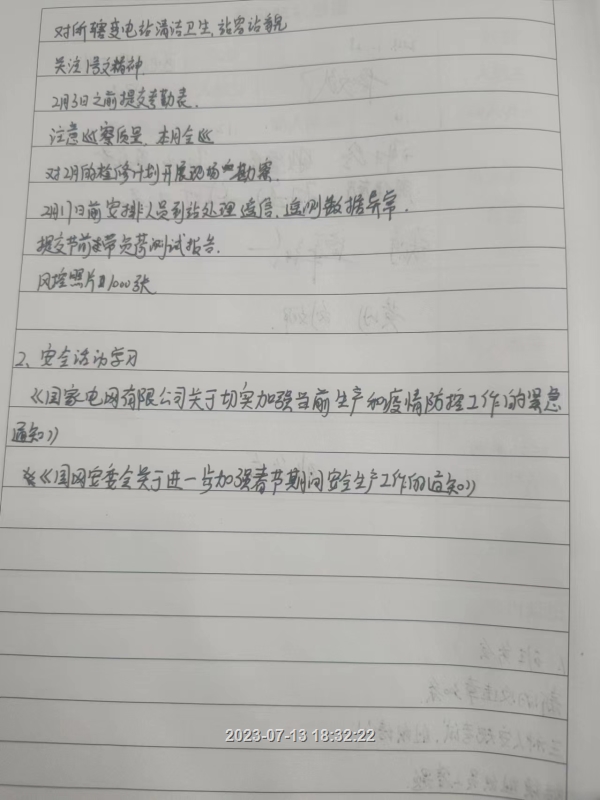 对所辖变电站清洁卫生，站容站貌
关注1号文精神.
2月3日之前提交考勤表.
注意巡察质量，本月全巡
对2月的检修计划开展现场勘察.
2月17日前安排人员到站处理遥信，遥测数据异常.
提交节前带负荷测试报告.
风控照片1000张
2、安全活动学习
《国家电网有限公司关于切实加强当前生产和疫情防控工作的紧急
通知》
《国网安委会关于进一步加强春节期间安全生产工作的通知》
2023-07-13 18:32:22